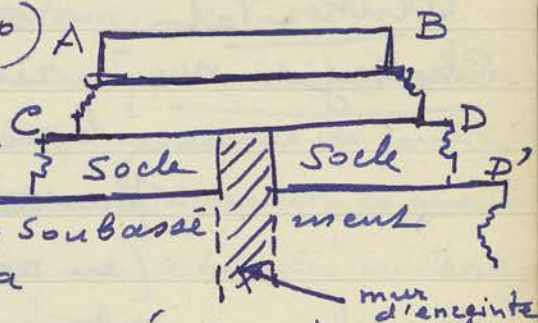 o) A B
C D
Socle Socle D'
Soubasse ment
a
mur
d'enceinte